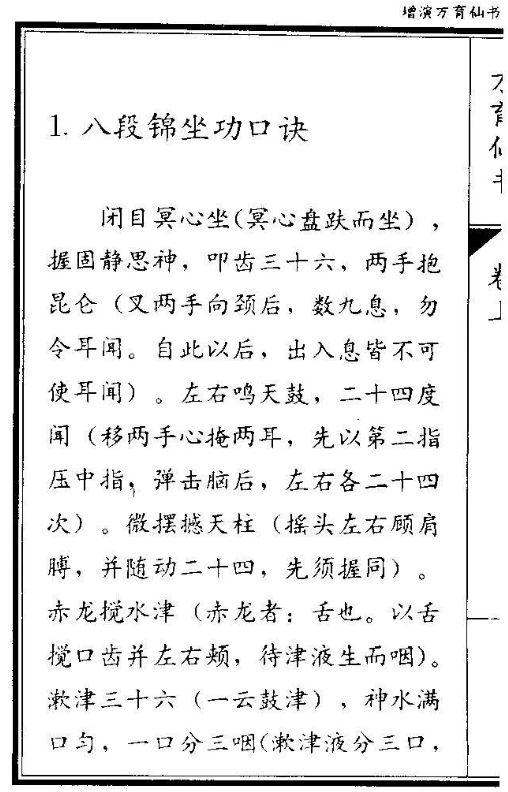 增演万育仙书
1. 八段锦坐功口诀
闭目冥心坐(冥心盘趺而坐)，
握固静思神，叩齿三十六，两手抱
昆仑（叉两手向颈后，数九息，勿
令耳闻。自此以后，出入息皆不可
使耳闻）。左右鸣天鼓，二十四度
闻（移两手心掩两耳，先以第二指
压中指，弹击脑后，左右各二十四
次）。微摆撼天柱（摇头左右顾肩
膊，并随动二十四，先须握同）。
赤龙搅水津（赤龙者：舌也。以舌
搅口齿并左右颊，待津液生而咽）。
漱津三十六（一云鼓津），神水满
口匀，一口分三咽(漱津液分三口，
万育仙书
卷上